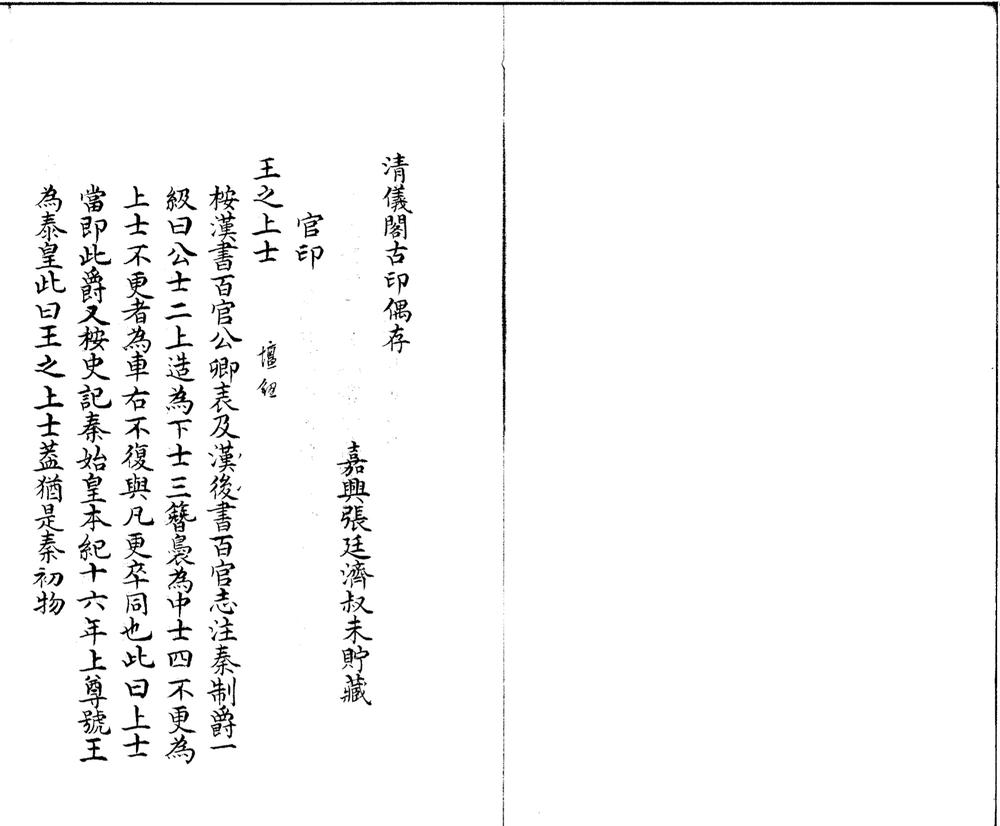 清儀閣古印偶存
嘉興張廷濟叔未貯藏
官印
王之上士 壇鈕
桉漢書百官公卿表及漢後書百官志注秦制爵一
級曰公士二上造為下士三簪裊為中士四不更為
上士不更者為車右不復與凡更卒同也此曰上士
當即此爵又桉史記秦始皇本紀十六年上尊號王
為泰皇此曰王之上士蓋猶是秦初物